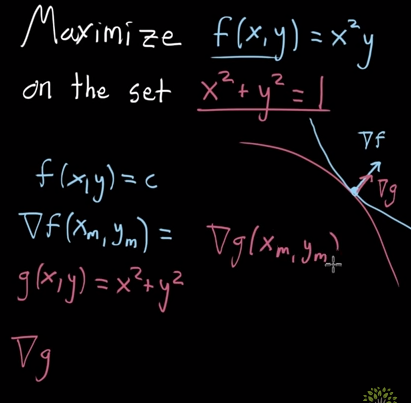 Maximize f(x,y) = x²y
on the set x² + y² = 1
∇f
∇g
f(x,y) = c
∇f(xₘ, yₘ) = ∇g(xₘ, yₘ)
g(x,y) = x² + y²
∇g